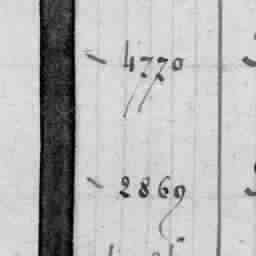 4770
2869